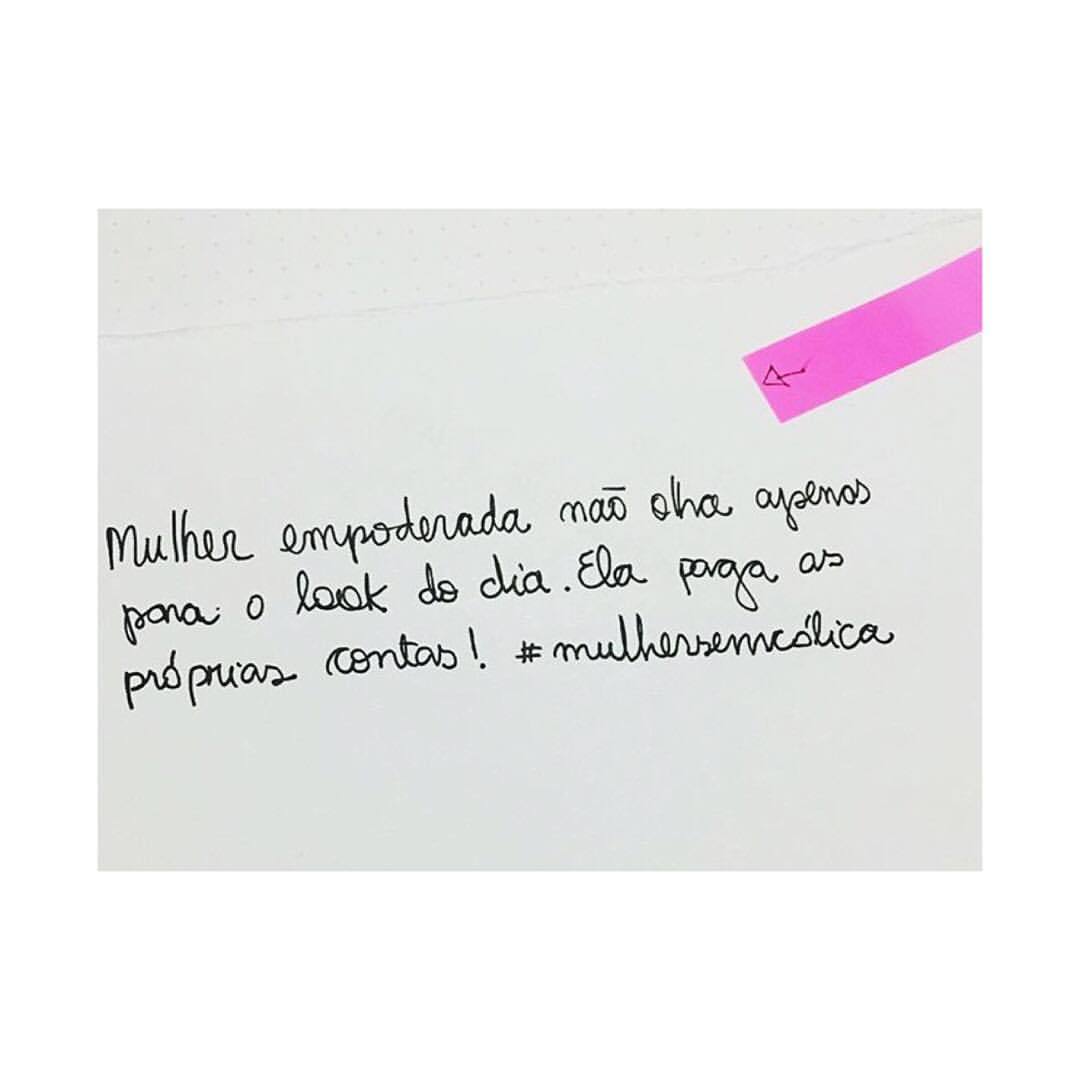 Mulher empoderada não olha apenas
para o look do dia. Ela paga as
próprias contas! #mulhersemcólica